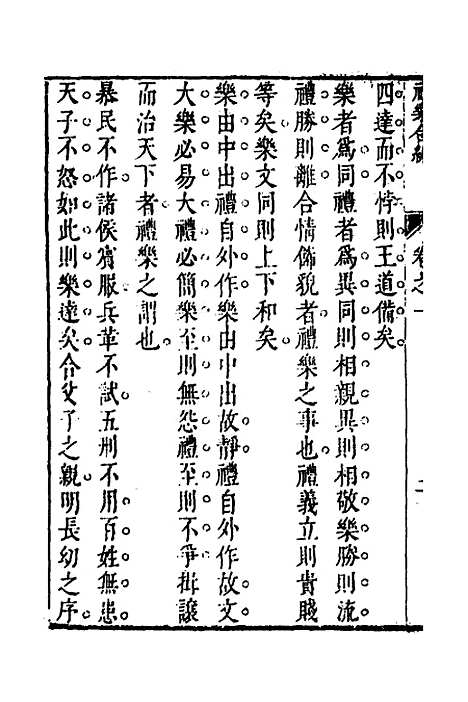 禮樂合編 卷之一 二
四達而不悖則王道備矣。
樂者爲同禮者爲異同則相親異則相敬樂勝則流
禮勝則離合情飾貌者禮樂之事也禮義立則貴賤
等矣樂文同則上下和矣
樂由中出禮自外作樂由中出故靜禮自外作故文
大樂必易大禮必簡樂至則無怨禮至則不爭揖讓
而治天下者禮樂之謂也
暴民不作諸侯賓服兵革不試五刑不用百姓無患
天子不怒如此則樂達矣合父子之親明長幼之序